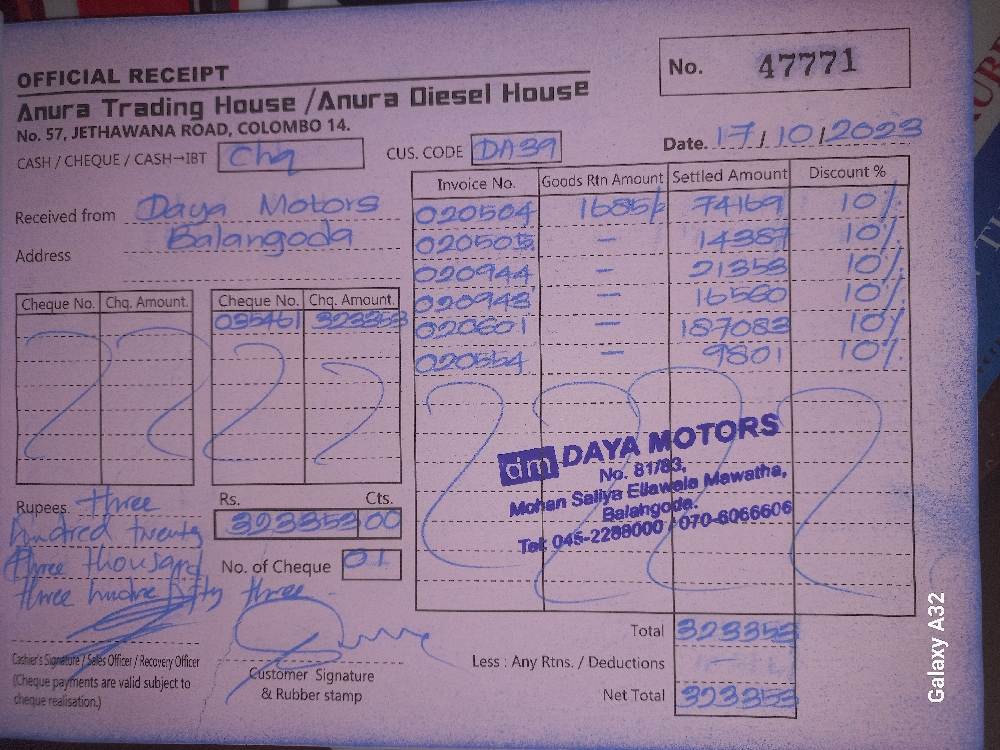 OFFICIAL RECEIPT
No. 47771
Anura Trading House / Anura Diesel House
No. 57, JETHAWANA ROAD, COLOMBO 14.
Date. 17/10/2023
CASH / CHEQUE / CASH→IBT Chq
CUS. CODE DA39
Received from Daya Motors
Balangoda
Address
Invoice No. Goods Rtn Amount Settled Amount Discount %
020504 1685/= 74169 10%
020505 — 14387 10%
020944 — 21353 10%
020943 — 16560 10%
020601 — 187083 10%
020554 — 9801 10%
Cheque No. Chq. Amount. Cheque No. Chq. Amount.
035461 323353
dm DAYA MOTORS
No. 81/83,
Mohan Saliya Ellawala Mawatha,
Balangoda.
Tel: 045-2288000 / 070-6066606
Rupees. three
hundred twenty
three thousand
three hundre fifty three
Rs. Cts.
323353 00
No. of Cheque 01
Total 323353
Less : Any Rtns. / Deductions —
Net Total 323353
Cashier's Signature / Sales Officer / Recovery Officer
(Cheque payments are valid subject to
cheque realisation.)
Customer Signature
& Rubber stamp
Galaxy A32